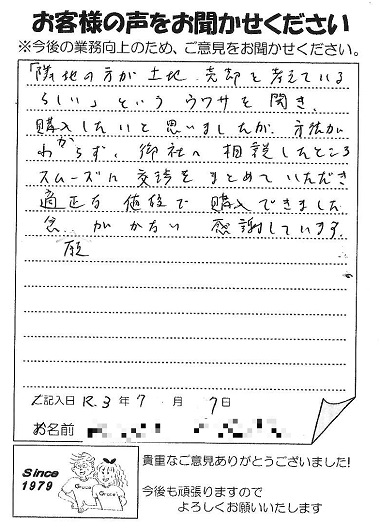 お客様の声をお聞かせください
※今後の業務向上のため、ご意見をお聞かせください。
「隣地の方が土地売却を考えている
らしい」という ウワサを 聞き、
購入したいと思いましたが、方法が
わからず、御社へ 相談したところ
スムーズに 交渉を まとめて いただき
適正な 値段で 購入できました
念願がかない 感謝しています。
ご記入日 R.3 年 7 月 7日
お名前
Since
1979
Grace
Grace
貴重なご意見ありがとうございました!
今後も頑張りますので
よろしくお願いいたします